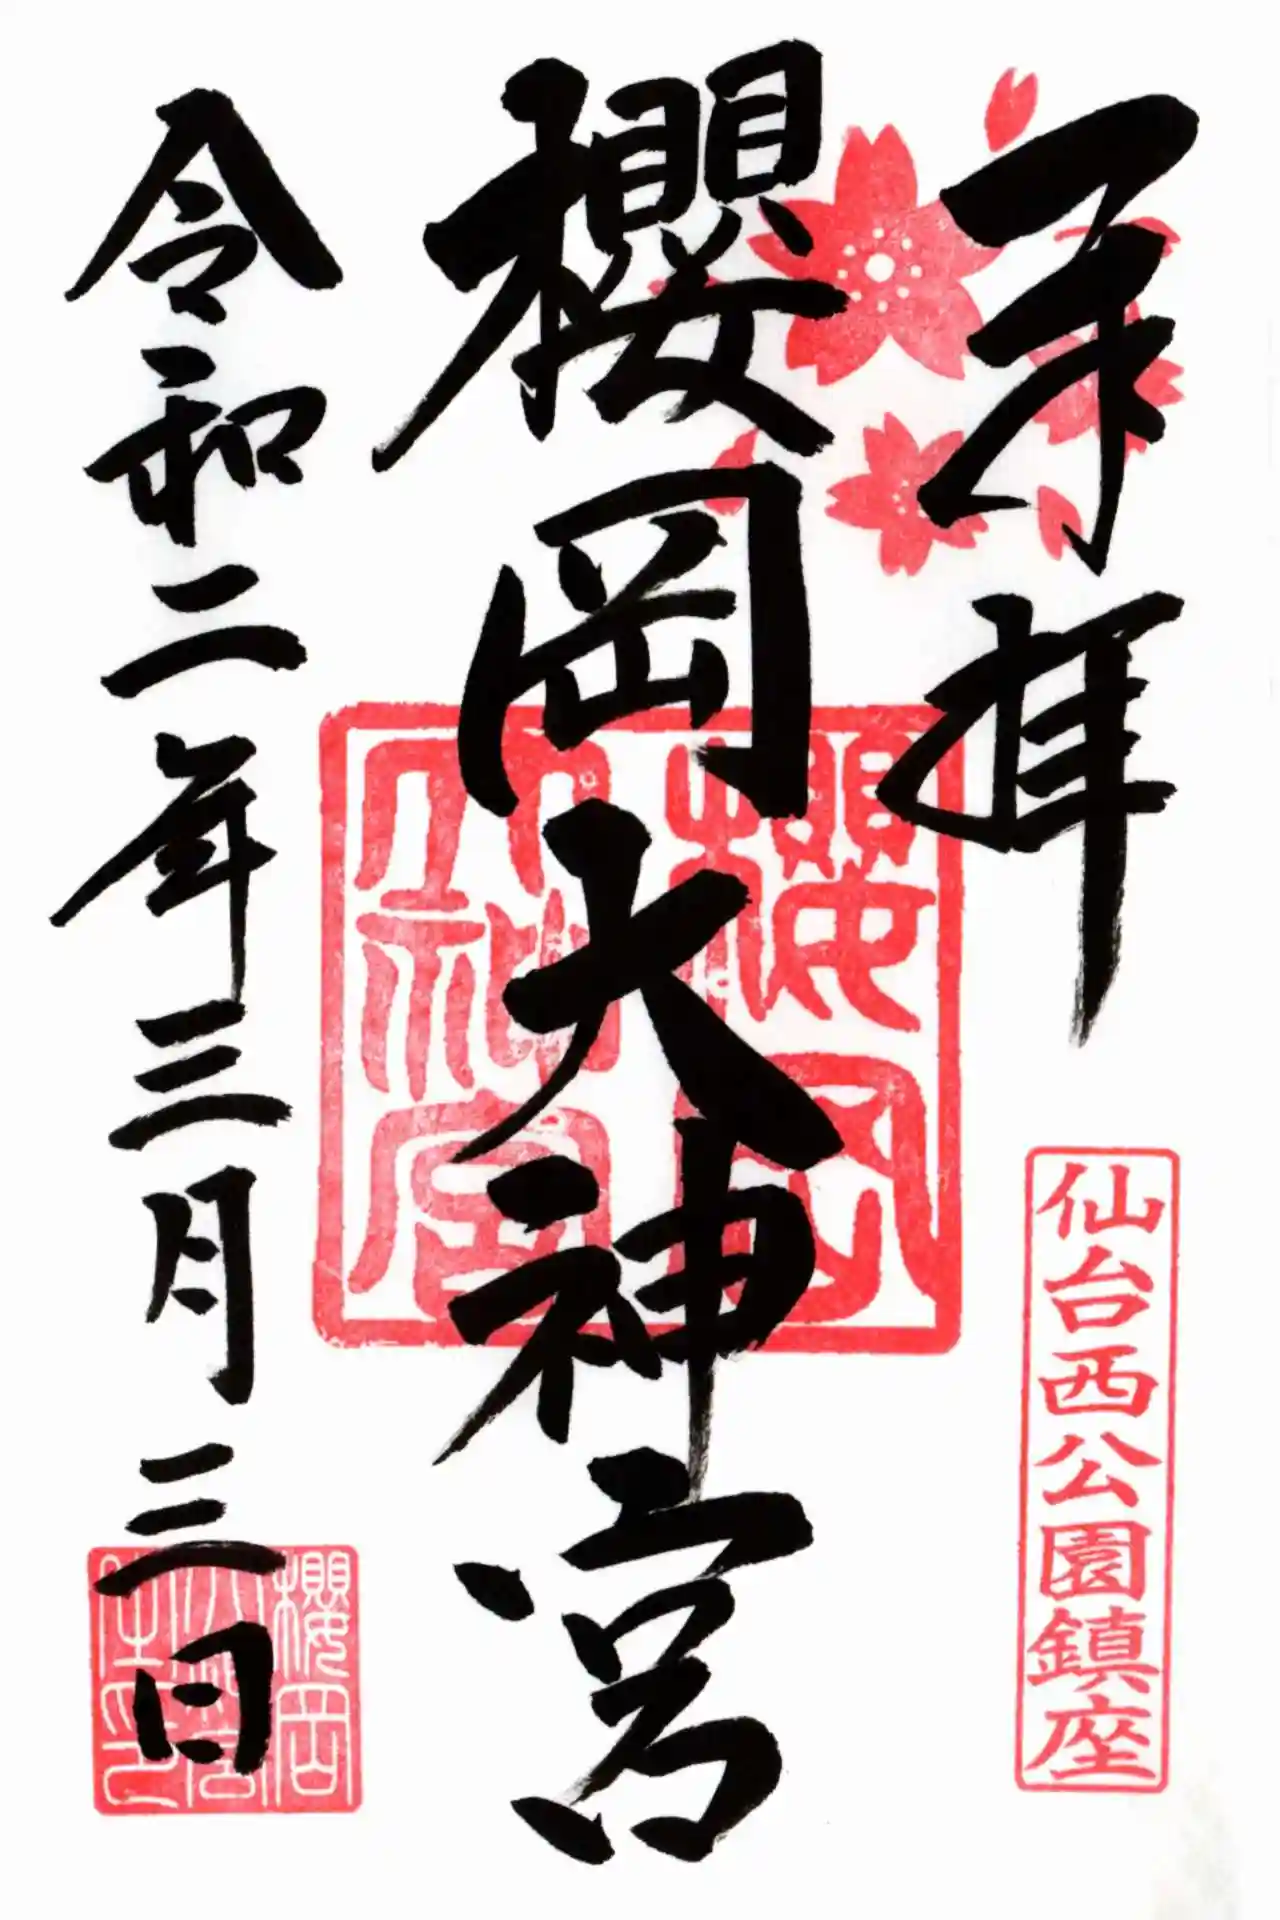 奉拝
仙台西公園鎮座
櫻岡大神宮
櫻岡
大神宮
令和二年三月三日
櫻岡
大神宮